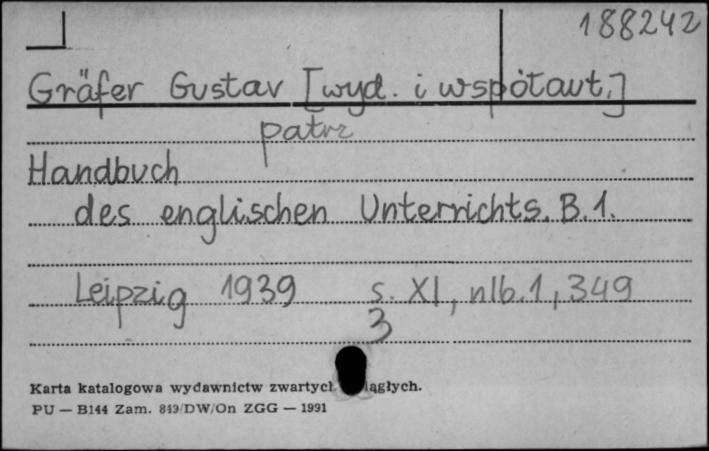 188242
Gräfer Gustav [wyd. i współaut.]
patrz
Handbuch
des englischen Unterrichts. B. 1.
Leipzig 1939 s. XI, nlb. 1, 349
3
Karta katalogowa wydawnictw zwartych ciągłych.
PU — B144 Zam. 849/DW/On ZGG — 1991